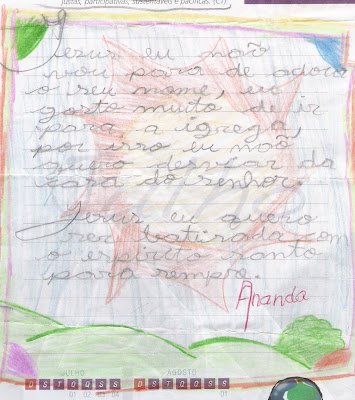 justas, participativas, sustentáveis e pacíficas. (CT)
Jesus eu não
vou para de adora
o seu nome, eu
gosto muito de ir
para a igreja,
por isso eu não
quero desviar da
casa do senhor.
Jesus eu quero
ser batisada com
o espirito santo
para sempre.
Ananda
JULHO
AGOSTO
D S T Q Q S S
D S T Q Q S S
01 02 03 04
01